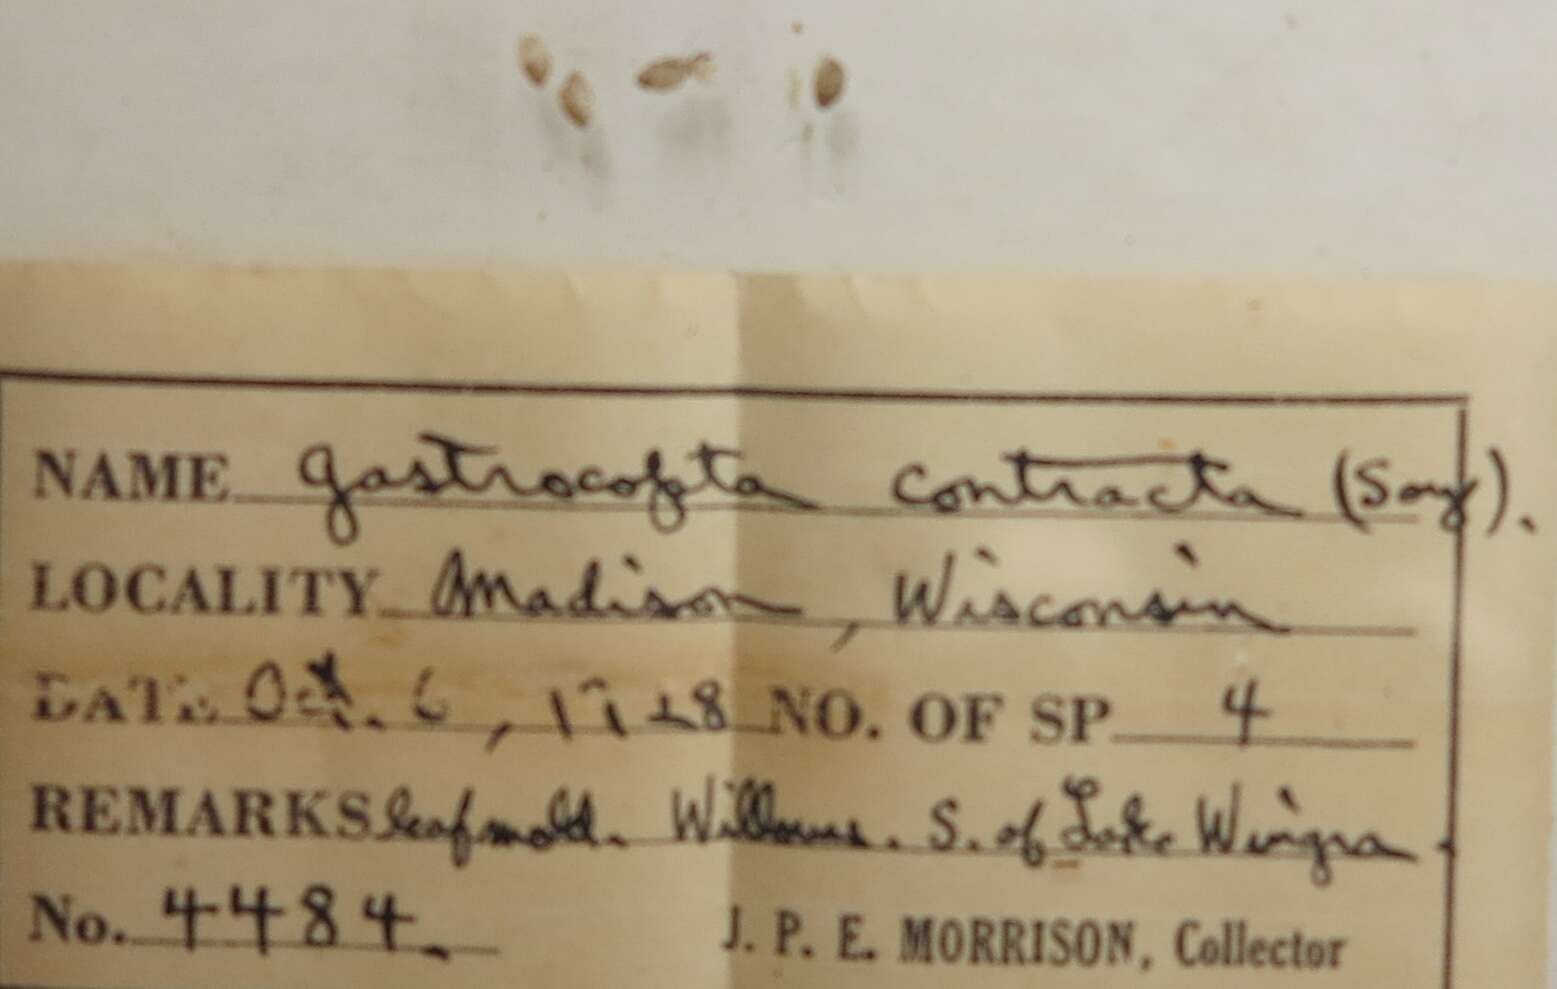 NAME Gastrocopta contracta (Say).
LOCALITY Madison, Wisconsin
DATE Oct. 6, 1928 NO. OF SP 4
REMARKS leafmold. Willows. S. of Lake Wingra.
No. 4484. J. P. E. MORRISON, Collector